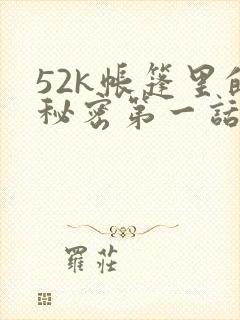 52k帳篷里的
秘密第一話
羅莊